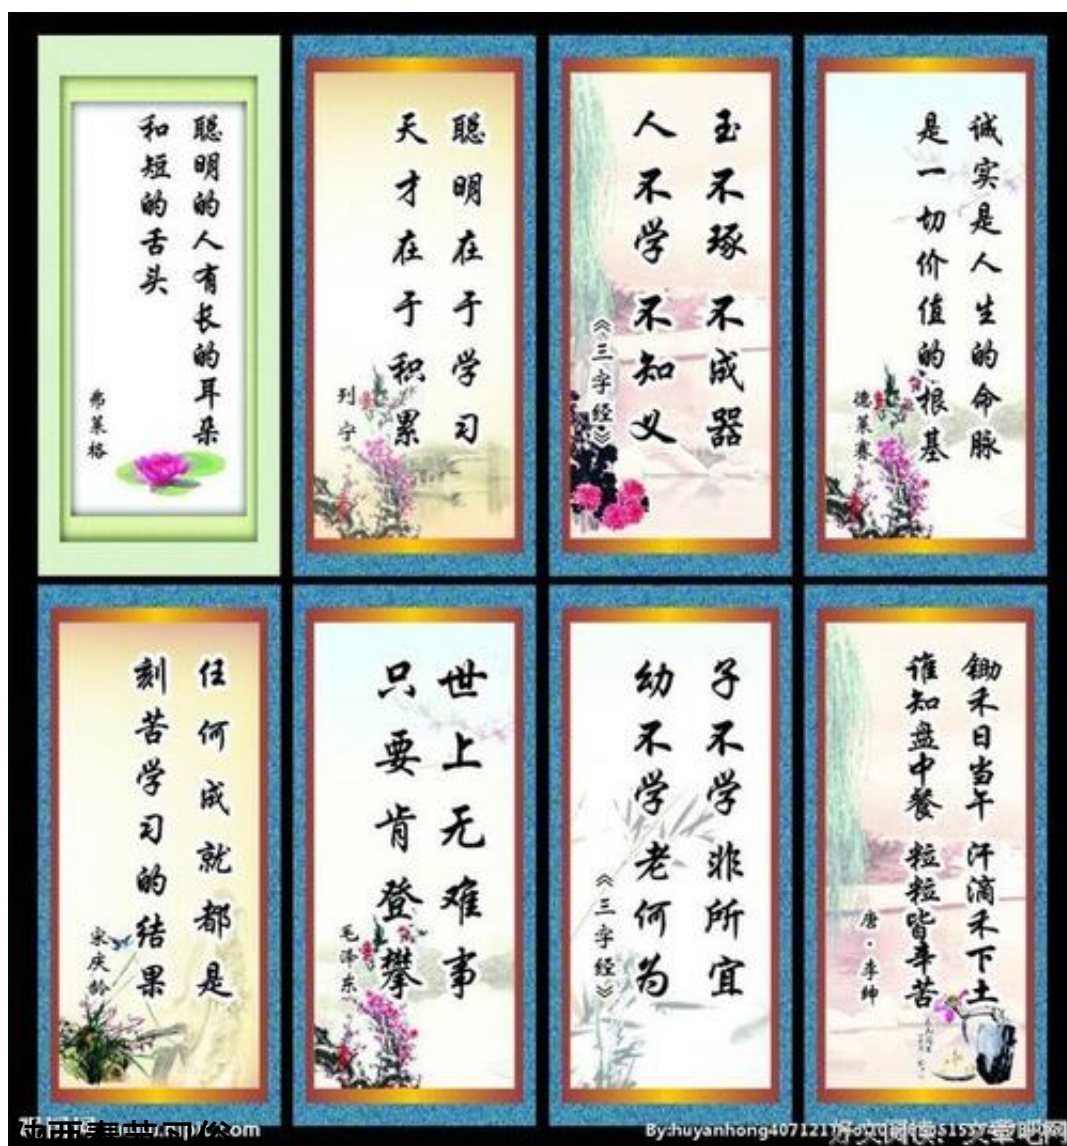 聪明的人有长的耳朵
和短的舌头
弗莱格
聪明在于学习
天才在于积累
列宁
玉不琢 不成器
人不学 不知义
《三字经》
诚实是人生的命脉
是一切价值的根基
德莱赛
任何成就都是
刻苦学习的结果
宋庆龄
世上无难事
只要肯登攀
毛泽东
子不学 非所宜
幼不学 老何为
《三字经》
锄禾日当午 汗滴禾下土
谁知盘中餐 粒粒皆辛苦
唐·李绅